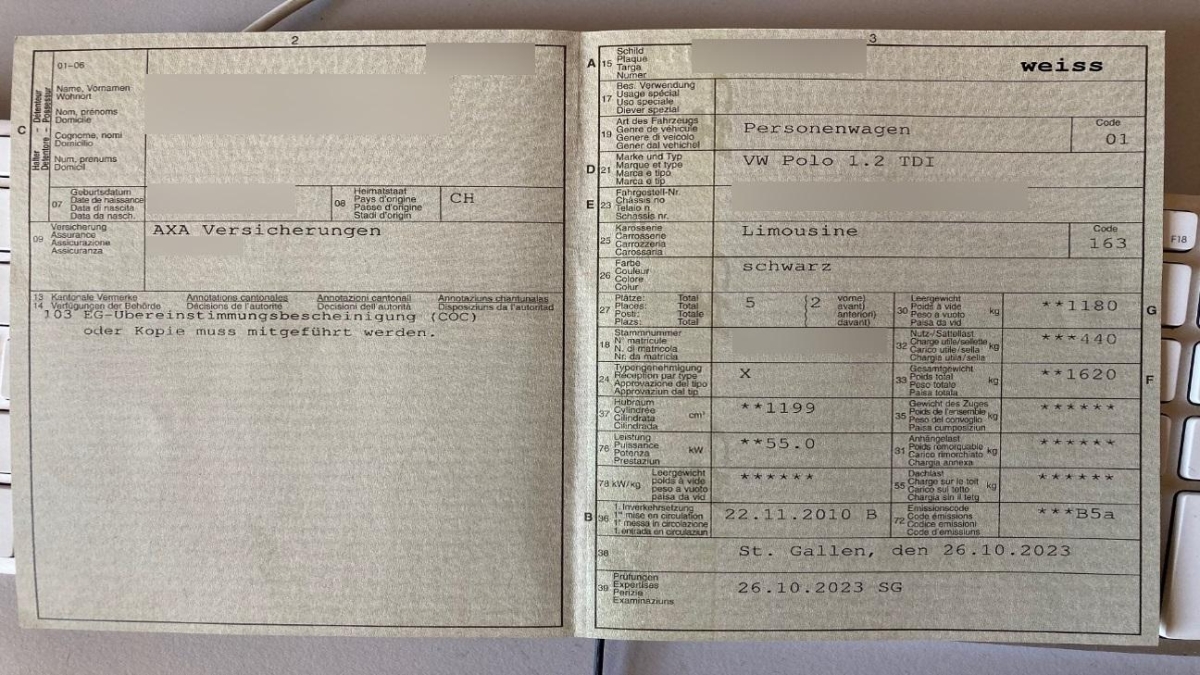 2
01-06
C
Halter - Détenteur
Detentore - Possessur
Name, Vornamen
Wohnort
Nom, prénoms
Domicile
Cognome, nomi
Domicilio
Num, prenums
Domicil
07
Geburtsdatum
Date de naissance
Data di nascita
Data da nasch.
08
Heimatstaat
Pays d'origine
Paese d'origine
Stadi d'origin
CH
09
Versicherung
Assurance
Assicurazione
Assicuranza
AXA Versicherungen
13 Kantonale Vermerke Annotations cantonales Annotazioni cantonali Annotaziuns chantunalas
14 Verfügungen der Behörde Décisions de l'autorité Decisioni dell'autorità Disposiziuns da l'autoritad
103 EG-Übereinstimmungsbescheinigung (COC)
oder Kopie muss mitgeführt werden.
3
A 15
Schild
Plaque
Targa
Numer
weiss
17
Bes. Verwendung
Usage spécial
Uso speciale
Diever spezial
19
Art des Fahrzeugs
Genre de véhicule
Genere di veicolo
Gener dal vehichel
Personenwagen
Code
01
D 21
Marke und Typ
Marque et type
Marca e tipo
Marca e tip
VW Polo 1.2 TDI
E 23
Fahrgestell-Nr.
Châssis no
Telaio n.
Schassis nr.
25
Karosserie
Carrosserie
Carrozzeria
Carossaria
Limousine
Code
163
26
Farbe
Couleur
Colore
Colur
schwarz
27
Plätze: Total
Places: Total
Posti: Totale
Plazs: Total
5
(2
vorne)
avant)
anteriori)
davant)
30
Leergewicht
Poids à vide
Peso a vuoto
Paisa da vid
kg
**1180
G
18
Stammnummer
N° matricule
N. di matricola
Nr. da matricla
32
Nutz-/Sattellast
Charge utile/sellette
Carico utile/sella
Chargia utila/sella
kg
***440
24
Typengenehmigung
Réception par type
Approvazione del tipo
Approvaziun dal tip
X
33
Gesamtgewicht
Poids total
Peso totale
Paisa totala
kg
**1620
F
37
Hubraum
Cylindrée
Cilindrata
Cilindrada
cm³
**1199
35
Gewicht des Zuges
Poids de l'ensemble
Peso del convoglio
Paisa cumposiziun
kg
******
76
Leistung
Puissance
Potenza
Prestaziun
kW
**55.0
31
Anhängelast
Poids remorquable
Carico rimorchiato
Chargia annexa
kg
******
78 kW/kg
Leergewicht
poids à vide
peso a vuoto
paisa da vid
******
55
Dachlast
Charge sur le toit
Carico sul tetto
Chargia sin il tetg
kg
******
B 36
1. Inverkehrsetzung
1re mise en circulation
1a messa in circolazione
1. entrada en circulaziun
22.11.2010 B
72
Emissionscode
Code émissions
Codice emissioni
Code d'emissiuns
***B5a
38
St. Gallen, den 26.10.2023
39
Prüfungen
Expertises
Perizie
Examinaziuns
26.10.2023 SG
F18